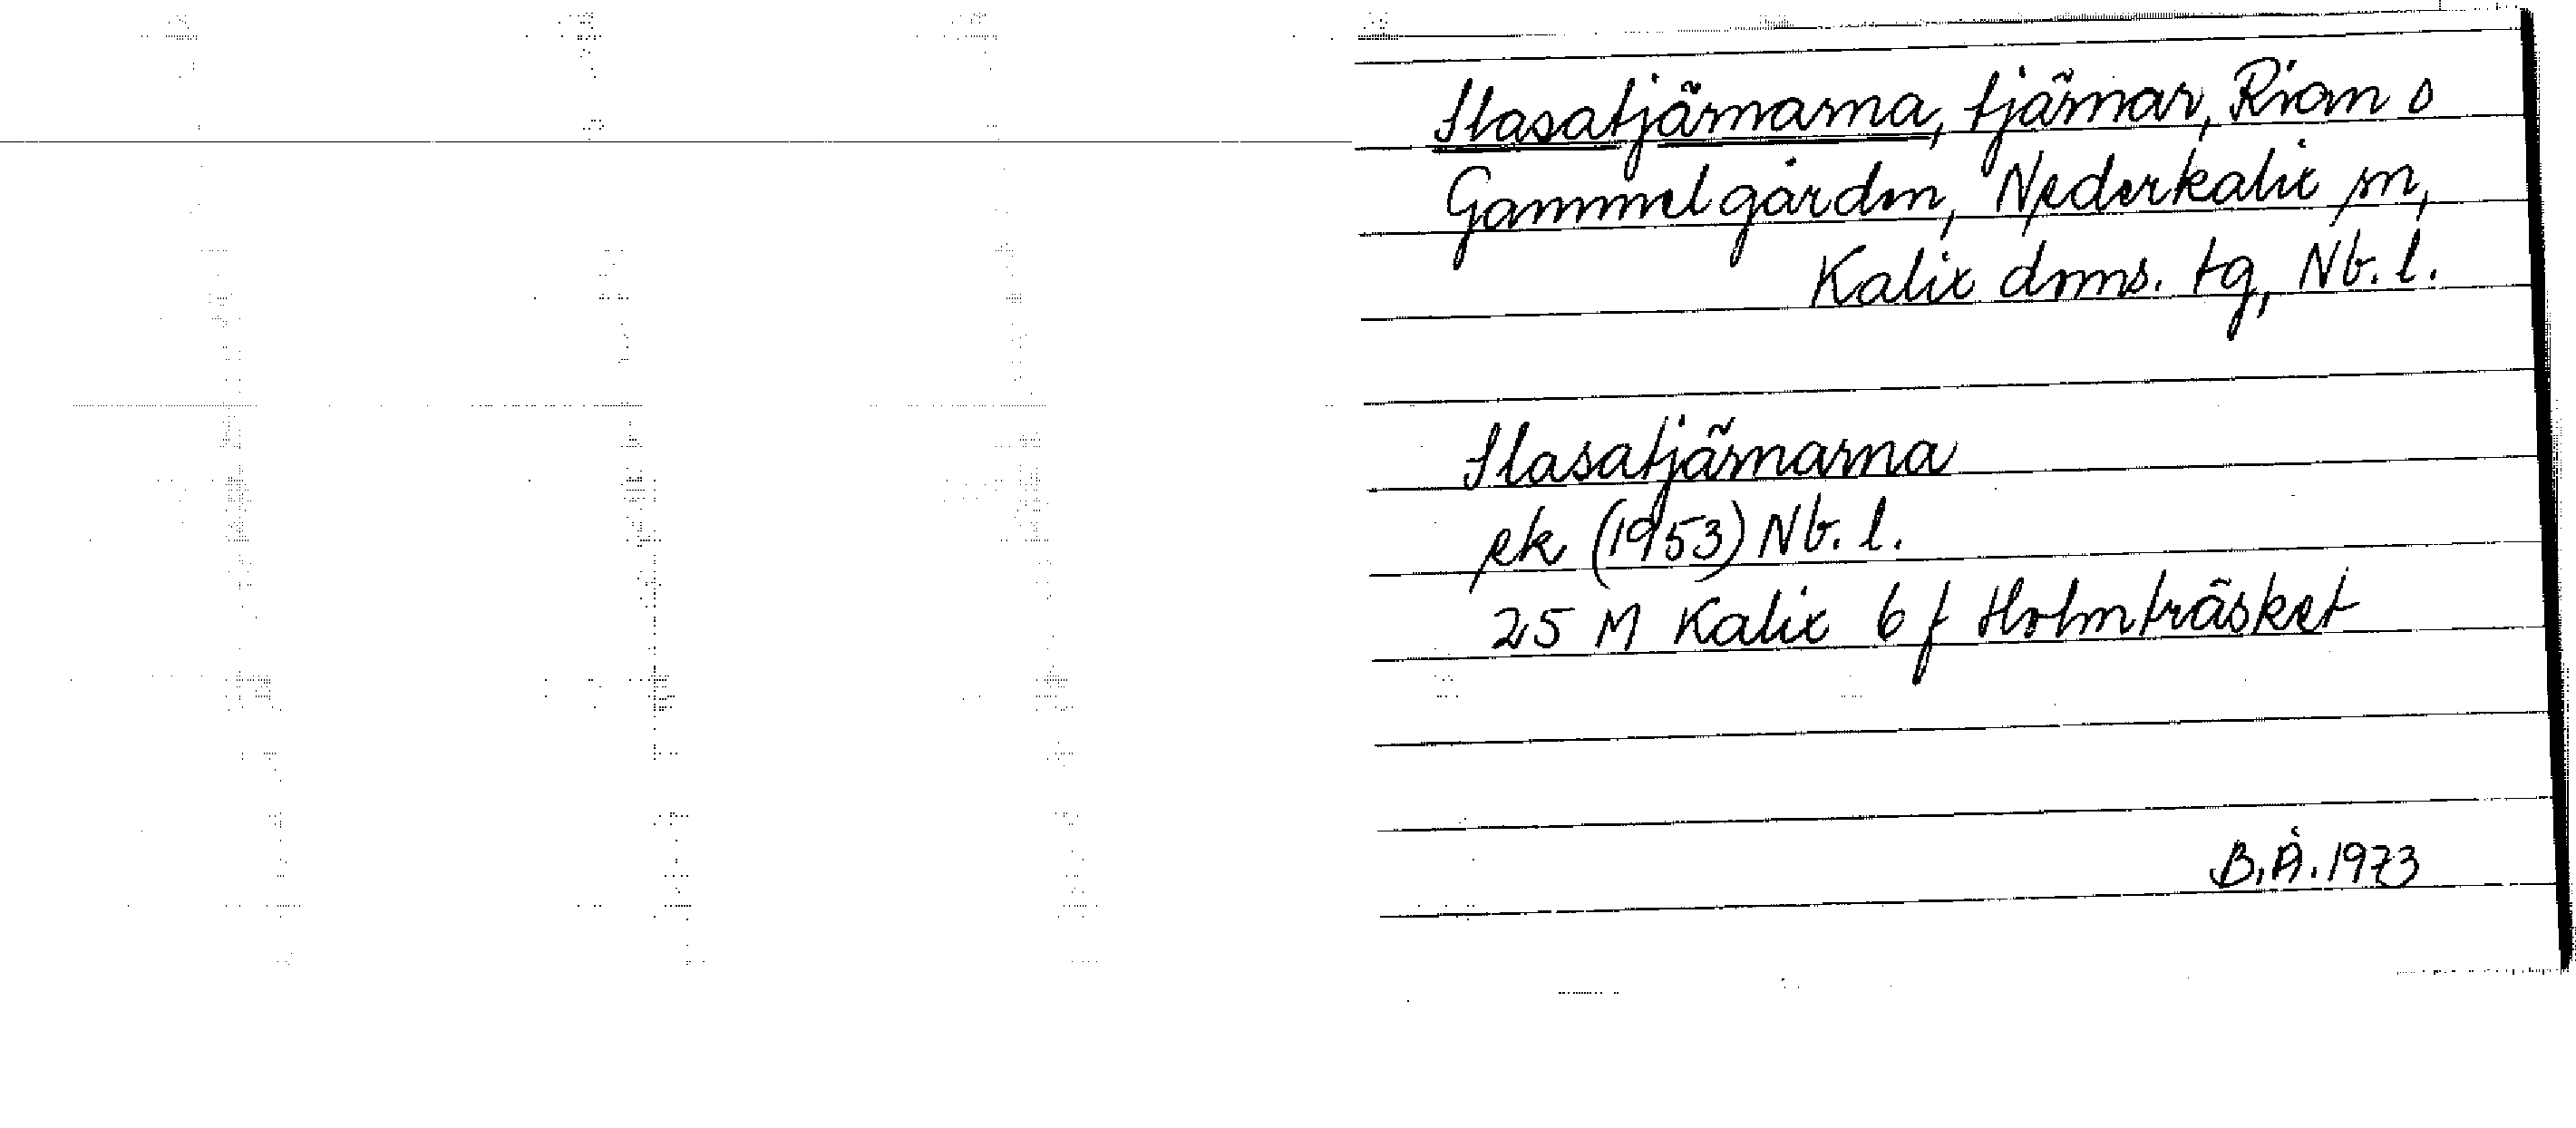 Slasatjärnarna, tjärnar, Rian o
Gammelgården, Nederkalix sn,
Kalix doms. tg, Nb. l.
Slasatjärnarna
ek (1953) Nb. l.
25 M Kalix 6 f Holmträsket
B.Å. 1973